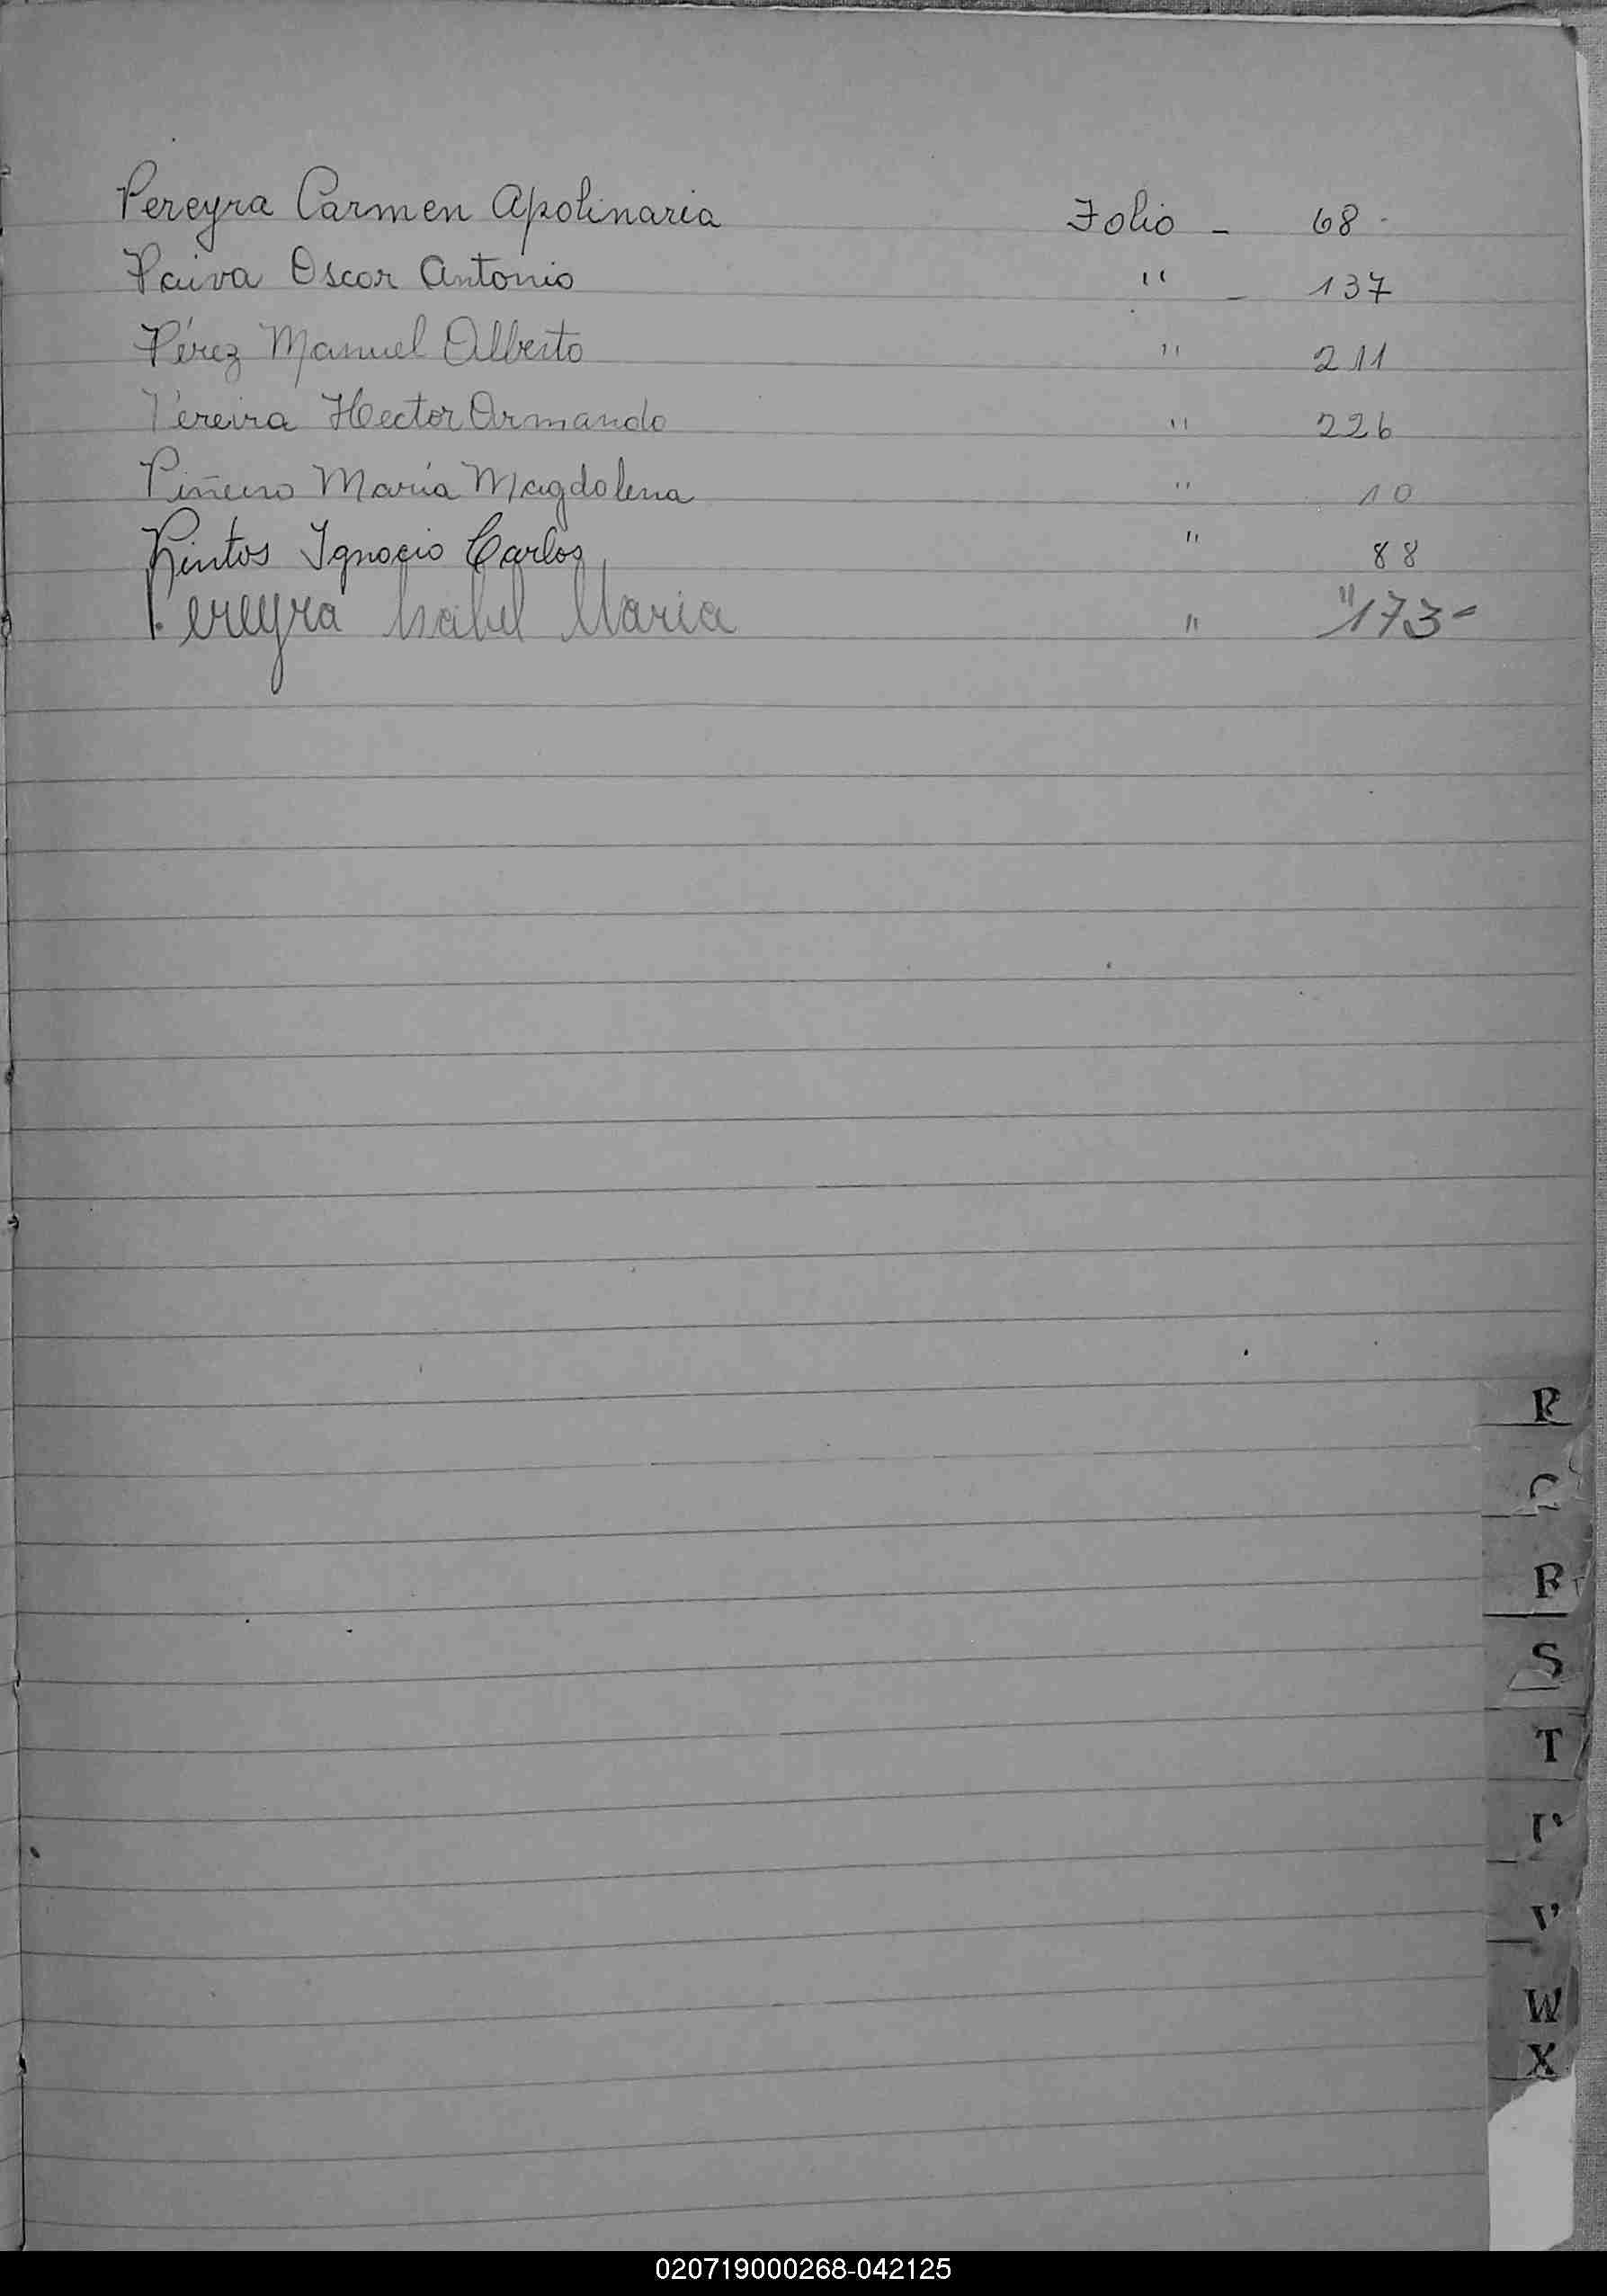 Pereyra Carmen Apolinaria Folio - 68 -
Paiva Oscar Antonio " - 137
Pérez Manuel Alberto " 211
Pereira Hector Armando " 226
Piñeiro María Magdalena " 10
Pintos Ignacio Carlos " 88
Pereyra Isabel Maria " " 173 -
P
Q
R
S
T
U
V
W
X
020719000268-042125